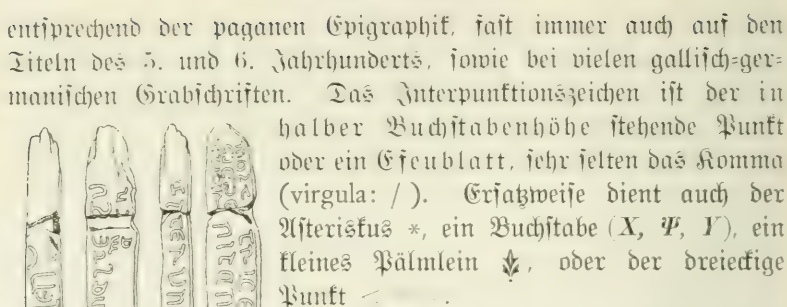 entsprechend der paganen Epigraphik, fast immer auch auf den
Titeln des 5. und 6. Jahrhunderts, sowie bei vielen gallisch-ger-
manischen Grabschriften. Das Interpunktionszeichen ist der in
halber Buchstabenhöhe stehende Punkt
oder ein Efeublatt, sehr selten das Komma
(virgula: / ). Ersatzweise dient auch der
Asteriskus *, ein Buchstabe (X, Ψ, Y), ein
kleines Pälmlein, oder der dreieckige
Punkt